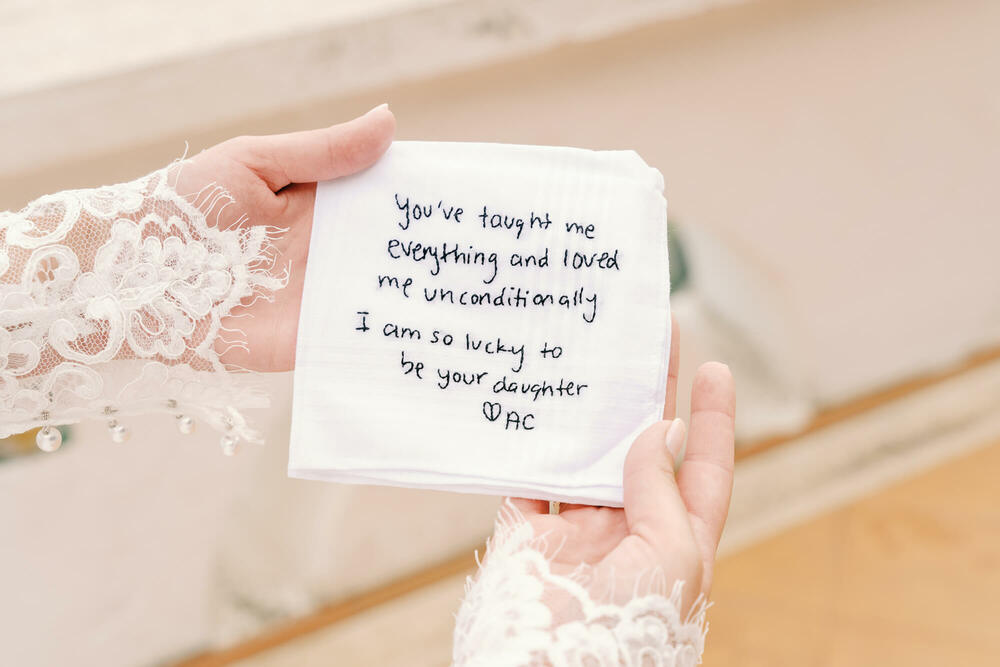 You've taught me
everything and loved
me unconditionally
I am so lucky to
be your daughter
♡AC